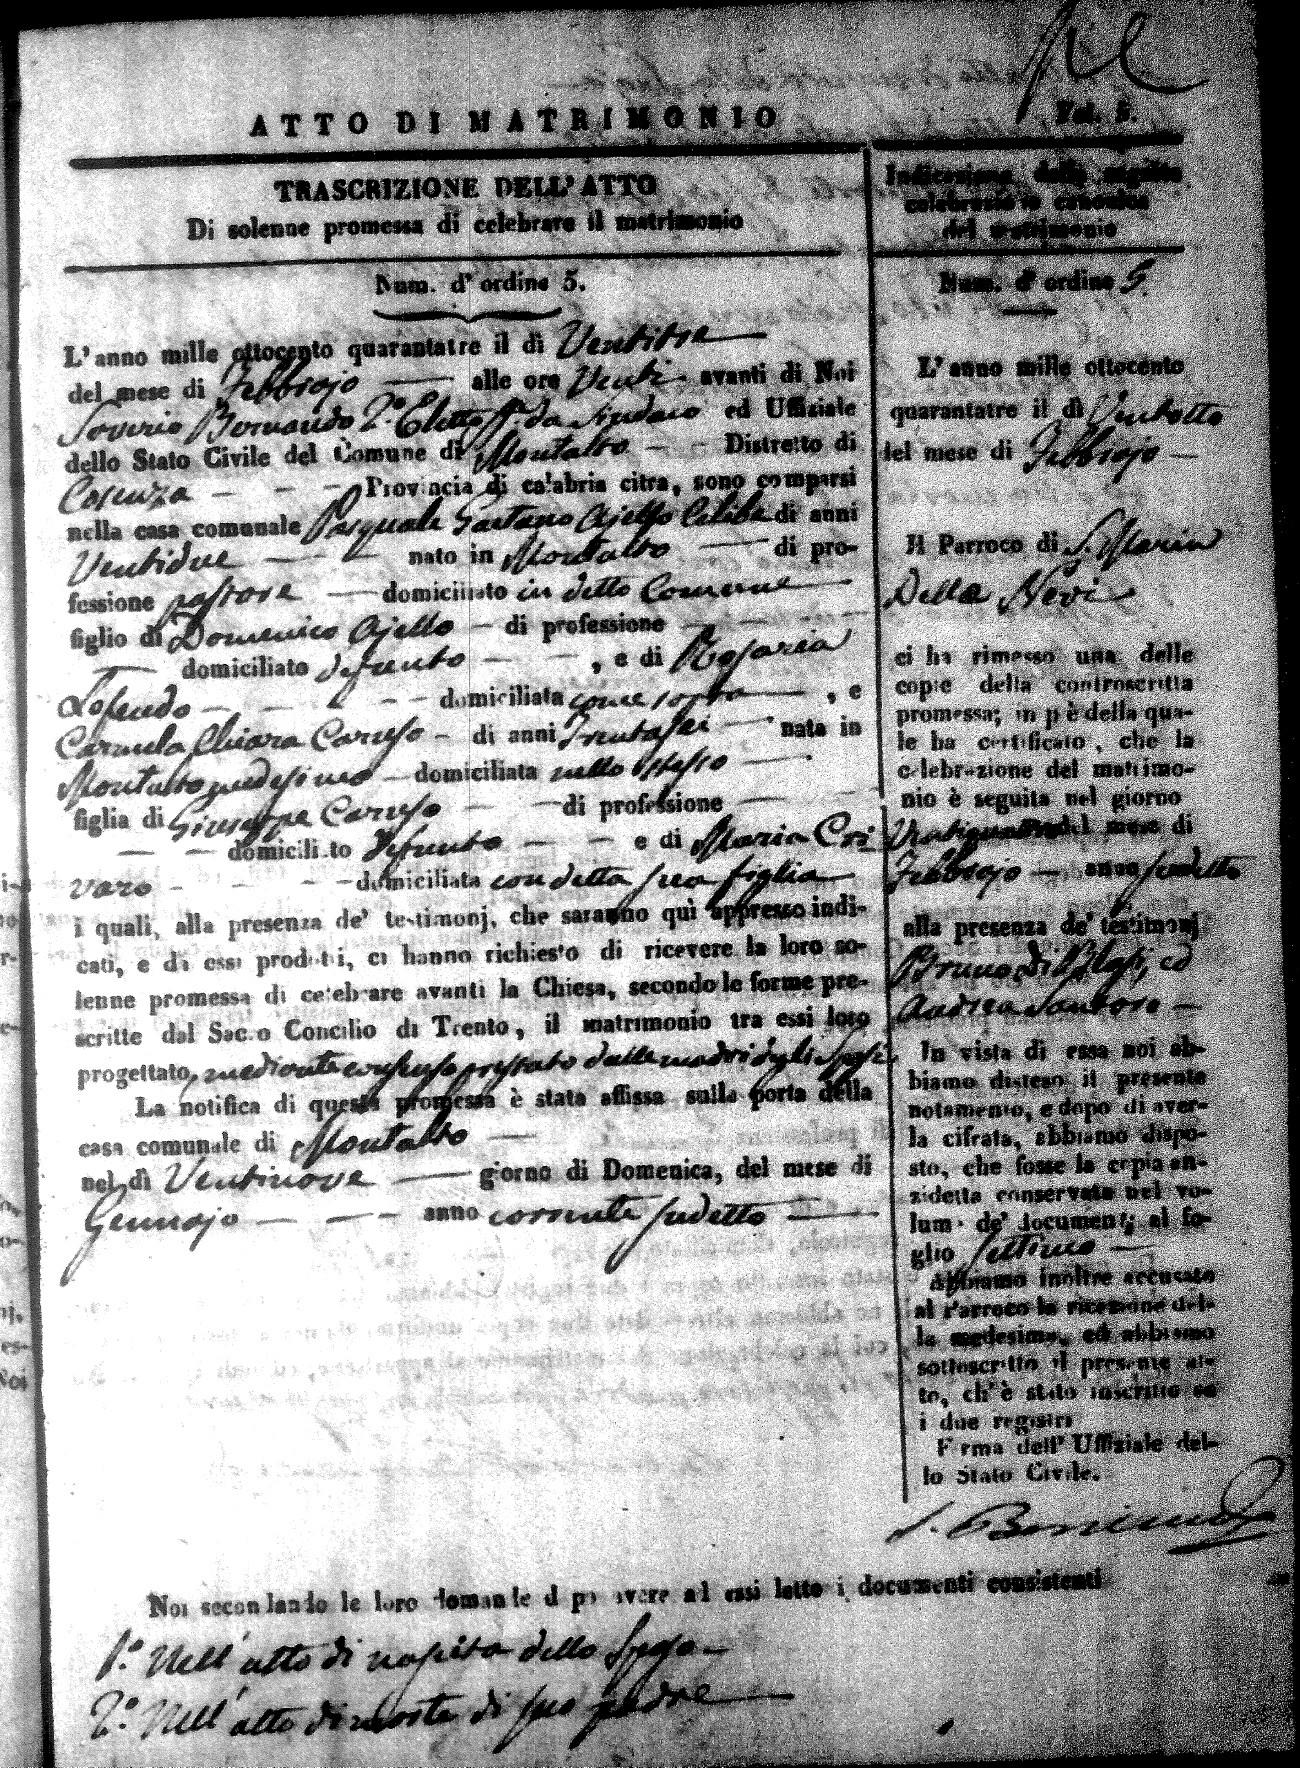 ATTO DI MATRIMONIO
Fol. 5.
TRASCRIZIONE DELL'ATTO
Di solenne promessa di celebrare il matrimonio
Num. d'ordine 5.
L'anno mille ottocento quarantatre il dì Ventitre
del mese di Febbrajo alle ore Venti avanti di Noi
Saverio Bernardo 2.º Eletto ff. da Sindaco ed Uffiziale
dello Stato Civile del Comune di Montalto Distretto di
Cosenza Provincia di calabria citra, sono comparsi
nella casa comunale Pasquale Gaetano Ajello Celibe di anni
Ventidue nato in Montalto di pro-
fessione pastore domiciliato in detto Comune
figlio di Domenico Ajello di professione
domiciliato defunto , e di Rosaria
Lofeudo domiciliata come sopra , e
Carmela Chiara Caruso di anni Trentasei nata in
Montalto medesimo domiciliata nello stesso
figlia di Giuseppe Caruso di professione
domiciliato defunto e di Maria Cri
varo domiciliata con detta sua figlia
i quali, alla presenza de' testimonj, che saranno quì appresso indi-
cati, e da essi prodotti, ci hanno richiesto di ricevere la loro so-
lenne promessa di celebrare avanti la Chiesa, secondo le forme pre-
scritte dal Sacro Concilio di Trento, il matrimonio tra essi loro
progettato, mediante consenso prestato dalle madri degli Sposi.
La notifica di questa promessa è stata affissa sulla porta della
casa comunale di Montalto
nel dì Ventinove giorno di Domenica, del mese di
Gennajo anno corrente sudetto
Indicazione della seguita
celebrazione canonica
del matrimonio
Num. d'ordine 5
L'anno mille ottocento
quarantatre il dì Ventotto
del mese di Febbrajo
Il Parroco di S. Maria
Della Nevi
ci ha rimesso una delle
copie della controscritta
promessa; in piè della qua-
le ha certificato, che la
celebrazione del matrimo-
nio è seguita nel giorno
Ventiquattro del mese di
Febbrajo anno sudetto
alla presenza de' testimonj
Bruno Di Blasi, ed
Andrea Santoro
In vista di essa noi ab-
biamo disteso il presente
notamento, e dopo di aver-
la cifrata, abbiamo dispo-
sto, che fosse la copia an-
zidetta conservata nel vo-
lume de' documenti al fo-
glio settimo
Abbiamo inoltre accusato
al Parroco la ricezione del-
la medesima, ed abbiamo
sottoscritto il presente at-
to, ch'è stato inscritto su
i due registri
Firma dell' Uffiziale del-
lo Stato Civile.
Noi secondando le loro domande d po avere ad essi letto i documenti consistenti
1.º Nell'atto di nascita dello Sposo
2.º Nell'atto di morte di suo padre